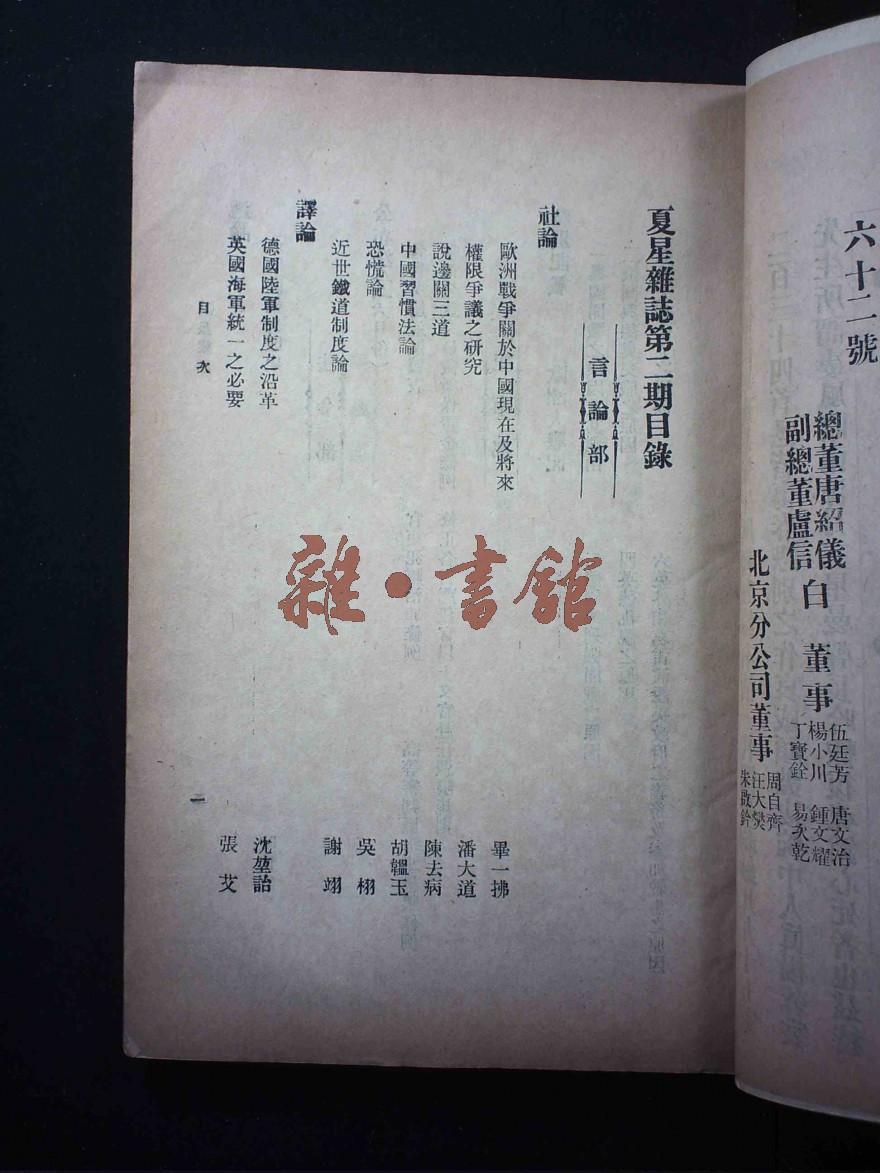 六十二號
總董唐紹儀
副總董盧信
白
董事
伍廷芳 唐文治
楊小川 鍾文耀
丁寶銓 易次乾
北京分公司董事
周自齊
汪大燮
朱啟鈐
夏星雜誌第二期目錄
言論部
社論
歐洲戰爭關於中國現在及將來 畢一拂
權限爭議之研究 潘大道
說邊關三道 陳去病
中國習慣法論 胡韞玉
恐慌論 吳栩
近世鐵道制度論 謝翊
譯論
德國陸軍制度之沿革 沈堃詒
英國海軍統一之必要 張艾
目次
二
雜·書館